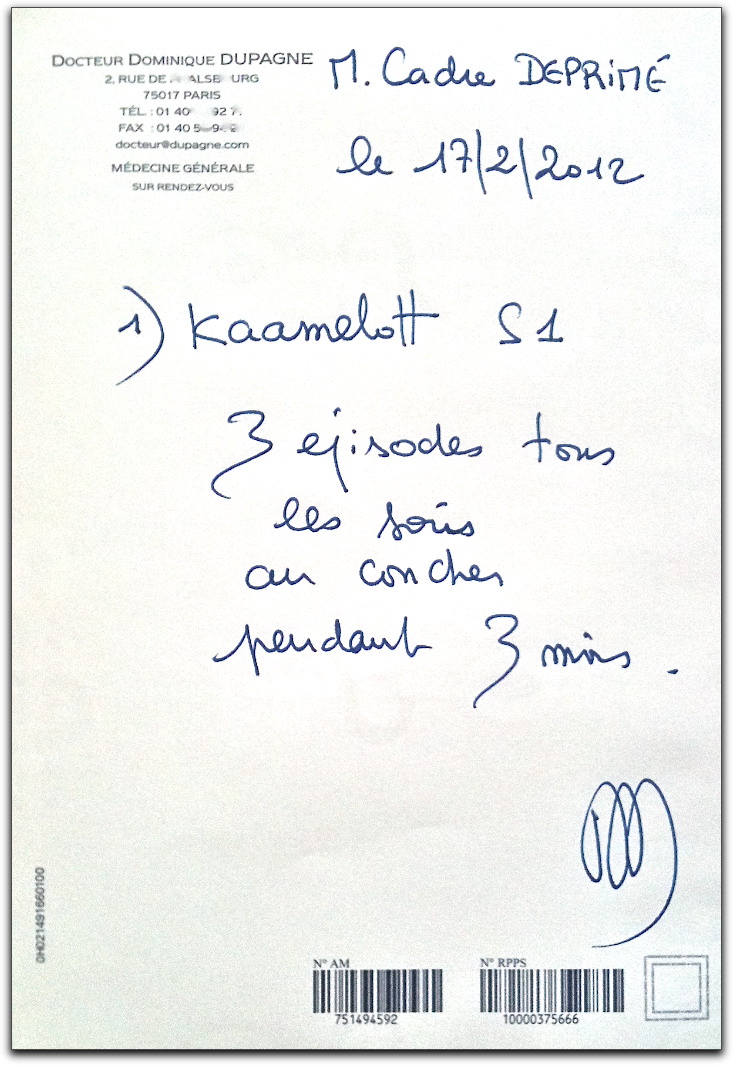 DOCTEUR DOMINIQUE DUPAGNE
2, RUE DE
75017 PARIS
TÉL. : 01 40 92 7.
FAX : 01 40 5
docteur@dupagne.com
MÉDECINE GÉNÉRALE
SUR RENDEZ-VOUS
M. Cadre DEPRIMÉ
le 17/2/2012
1) Kaamelott S1
3 episodes tous
les soirs
au coucher
pendant 3 mois.
0H021491660100
N° AM
751494592
N° RPPS
10000375666